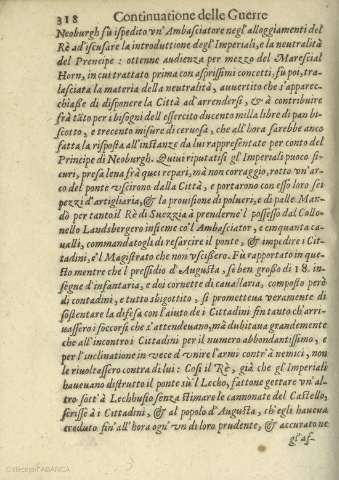 318 Continuatione delle Guerre
Neoburgh fù ispedito vn'Ambasciatore negl'alloggiamenti del
Rè ad iscusare la introduttione degl'Imperiali, e la neutralità
del Prencipe: ottenne audienza per mezzo del Marescial
Horn, in cui trattato prima con asprissimi concetti, fù poi, tra-
lasciata la materia della neutralità, auuertito che s'apparec-
chiasse di disponere la Città ad arrendersi, & à contribuire
frà tãto per i bisogni dell'essercito ducento milla libre di pan bi-
scotto, e trecento misure di ceruosa, che all'hora sarebbe anco
fatta la risposta all'instanze da lui rappresentate per conto del
Principe di Neoburgh. Quiui riputatisi gl'Imperiali puoco si-
curi, presa lena frà queci repari, mà non corraggio, rotto vn'ar-
co del ponte vscirono dalla Città, e portarono con esso loro sei
pezzi d'artigliaria, & la prouisione di polueri, e di palle. Man-
dò per tanto il Rè di Suezzia à prenderne'l possesso dal Collo-
nello Landsbergero insieme co'l Ambasciator, e cinquanta ca-
ualli, commandatogli di resarcire il ponte, & impedire i Cit-
tadini, e'l Magistrato che non vscissero. Fù rapportato in que-
sto mentre che'l pressidio d'Augusta, sè ben grosso di 18. in-
segne d'infantaria, e doi cornette di cauallaria, composto però
di contadini, e tutto sbigottito, si prometteua veramente di
sostentare la difesa con l'aiuto de i Cittadini fin tanto ch'arri-
uassero i soccorsi che s'attendeuano, mà dubitaua grandemente
che all'incontro i Cittadini per il numero abbondantissimo, e
per l'inclinatione in vece d'vnire l'armi contr'à nemici, non
le riuoltassero contra di lui: Così il Rè, già che gl'Imperiali
haueuano distrutto il ponte sù'l Lecho, fattone gettare vn'al-
tro sott'à Lechhusio senza stimare le cannonate del Castello,
scrisse à i Cittadini, & al popolo d'Augusta, ch'egli haueua
creduto fin'all'hora ogn'vn di loro prudente, & accurato ne
gl'af-